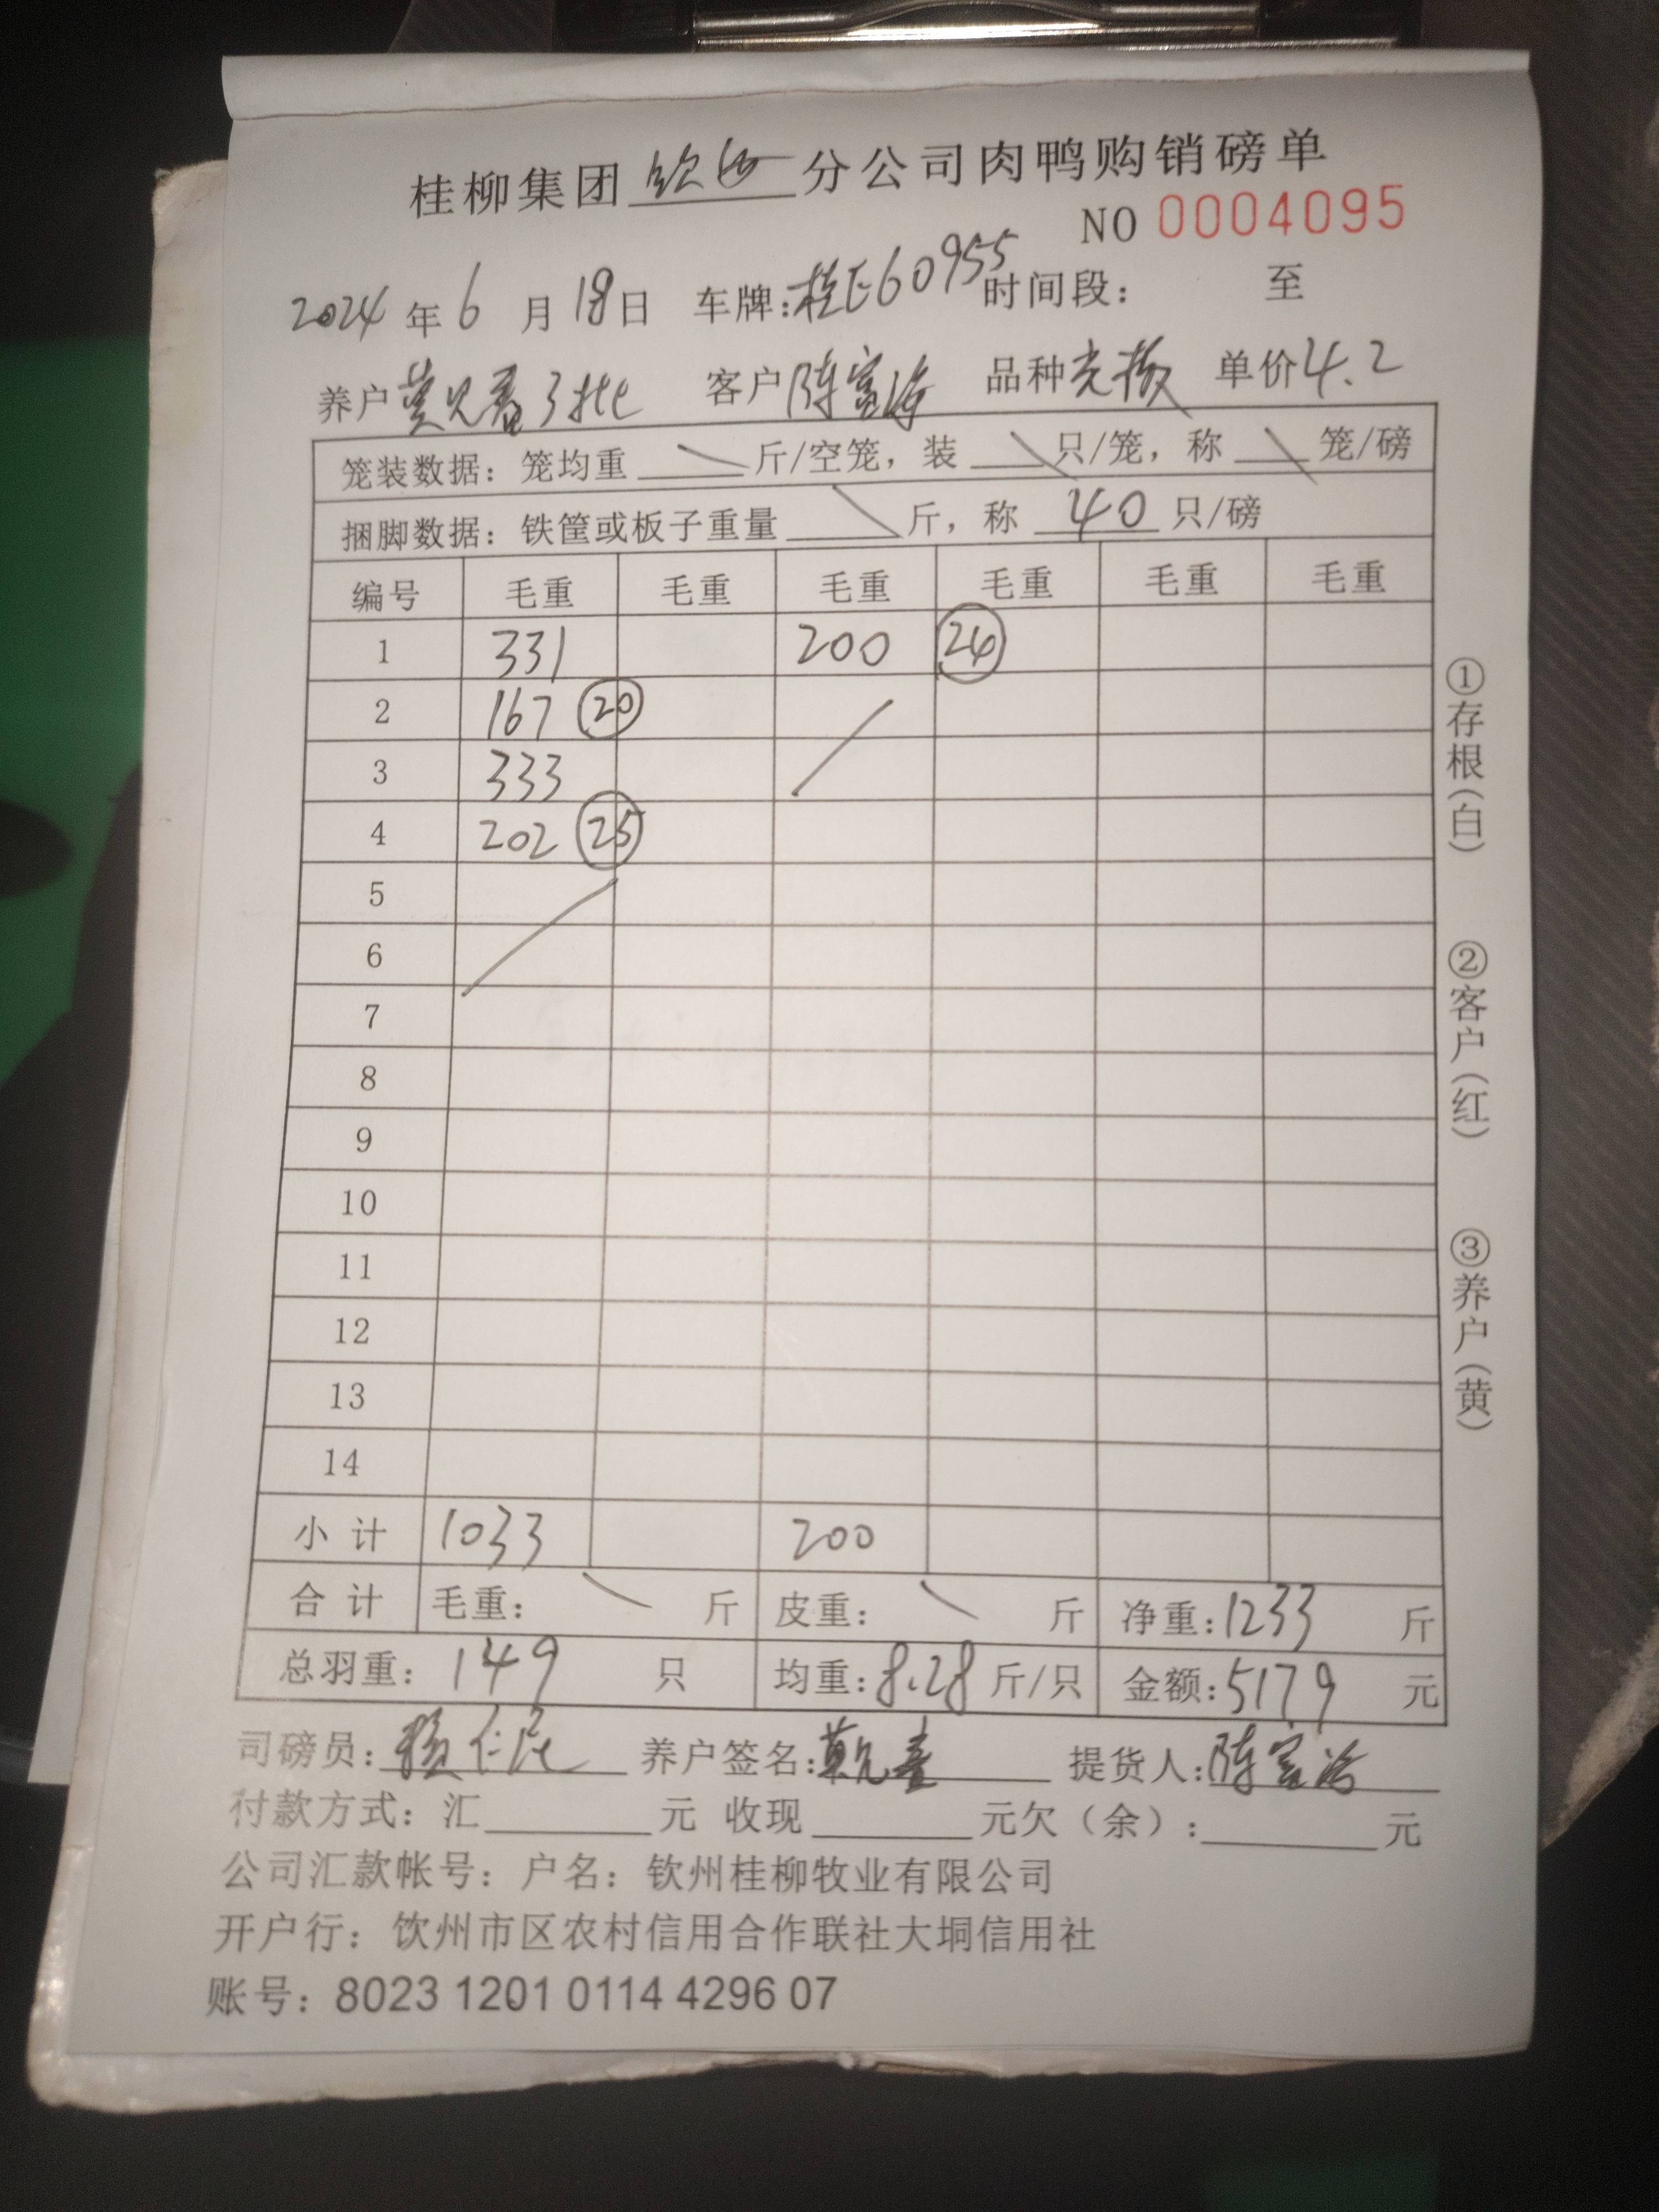 桂柳集团钦州分公司肉鸭购销磅单
NO 0004095
2024年6月18日 车牌:桂E60955 时间段: 至
养户 3批 客户陈富 品种 单价4.2
笼装数据：笼均重 斤/空笼，装 只/笼，称 笼/磅
捆脚数据：铁筐或板子重量 斤，称 40 只/磅
编号 毛重 毛重 毛重 毛重 毛重 毛重
1 331 200 24
2 167 20
3 333
4 202 25
5
6
7
8
9
10
11
12
13
14
小计 1033 200
合计 毛重： 斤 皮重： 斤 净重:1233 斤
总羽重：149 只 均重:8.28斤/只 金额:5179 元
司磅员: 养户签名: 提货人:陈富
付款方式：汇 元 收现 元欠（余）: 元
公司汇款帐号：户名：钦州桂柳牧业有限公司
开户行：饮州市区农村信用合作联社大垌信用社
账号：8023 1201 0114 4296 07
①存根(白) ②客户(红) ③养户(黄)